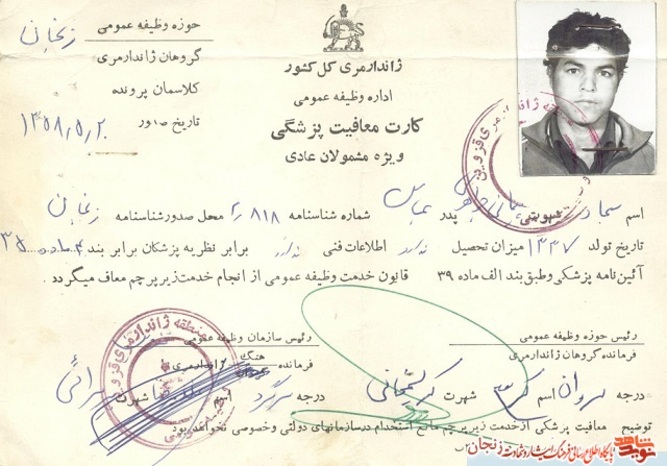 حوزه وظیفه عمومی زنجان
گروهان ژاندارمری
کلاسمان پرونده
تاریخ صدور ۱۳۵۸/۵/۲۰
ژاندارمری کل کشور
اداره وظیفه عمومی
کارت معافیت پزشگی
ویژه مشمولان عادی
اسم شهرت پدر عباس شماره شناسنامه ۸۱۸ محل صدور شناسنامه زنجان
تاریخ تولد ۱۳۳۷ میزان تحصیل ندارد اطلاعات فنی ندارد برابر نظریه پزشکان برابر بند
آئین‌نامه پزشکی وطبق بند الف ماده ۳۹ قانون خدمت وظیفه عمومی از انجام خدمت زیر پرچم معاف میگردد.
رئیس حوزه وظیفه عمومی
فرمانده گروهان ژاندارمری
درجه سروان اسم شهرت
رئیس سازمان وظیفه عمومی
فرمانده هنگ ژاندارمری
درجه سرگرد اسم شهرت
توضیح معافیت پزشکی از خدمت زیر پرچم مانع استخدام در سازمانهای دولتی وخصوصی نخواهد بود
منطقه ژاندارمری قزوین
ژاندارمری قزوین
نوید شاهد
پایگاه اطلاع رسانی فرهنگ ایثار و شهادت زنجان